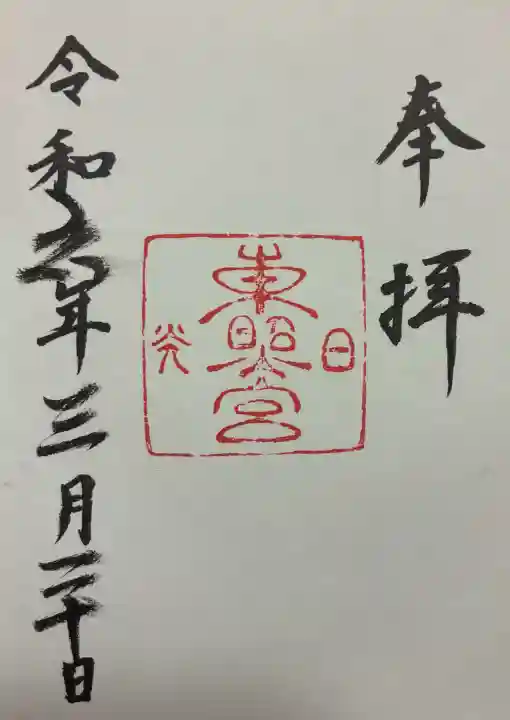 奉拝
日
東照宮
光
令和年三月二十日